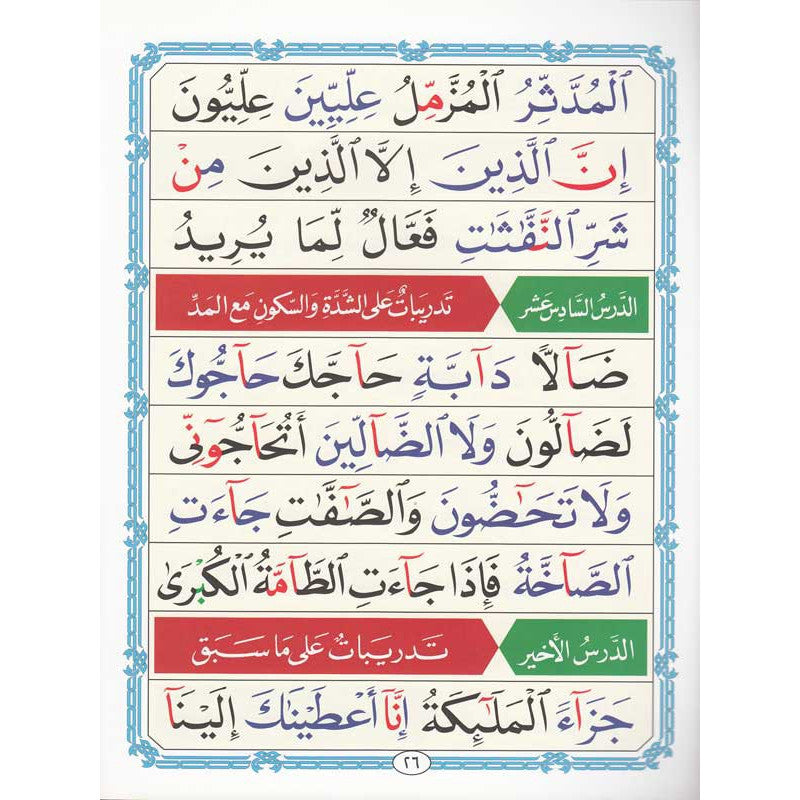 ٱلْمُدَّثِّرُ ٱلْمُزَّمِّلُ عِلِّيِّينَ عِلِّيُّونَ
إِنَّ ٱلَّذِينَ إِلَّا ٱلَّذِينَ مِنْ
شَرِّ ٱلنَّفَّٰثَٰتِ فَعَّالٌ لِّمَا يُرِيدُ
الدَّرسُ السَّادِسَ عَشَر تَدرِيبَاتٌ عَلَى الشَّدَّةِ وَالسُّكُونِ مَعَ المَدِّ
ضَآلًّا دَآبَّةٍ حَآجَّكَ حَآجُّوكَ
لَضَآلُّونَ وَلَا ٱلضَّآلِّينَ أَتُحَٰٓجُّوٓنِّى
وَلَا تَحَٰٓضُّونَ وَٱلصَّٰٓفَّٰتِ جَآءَتِ
ٱلصَّآخَّةُ فَإِذَا جَآءَتِ ٱلطَّآمَّةُ ٱلْكُبْرَىٰ
الدَّرسُ الأَخِير تَدرِيبَاتٌ عَلَى مَا سَبَق
جَزَآءً ٱلْمَلَٰٓئِكَةُ إِنَّآ أَعْطَيْنَٰكَ إِلَيْنَآ
٢٦